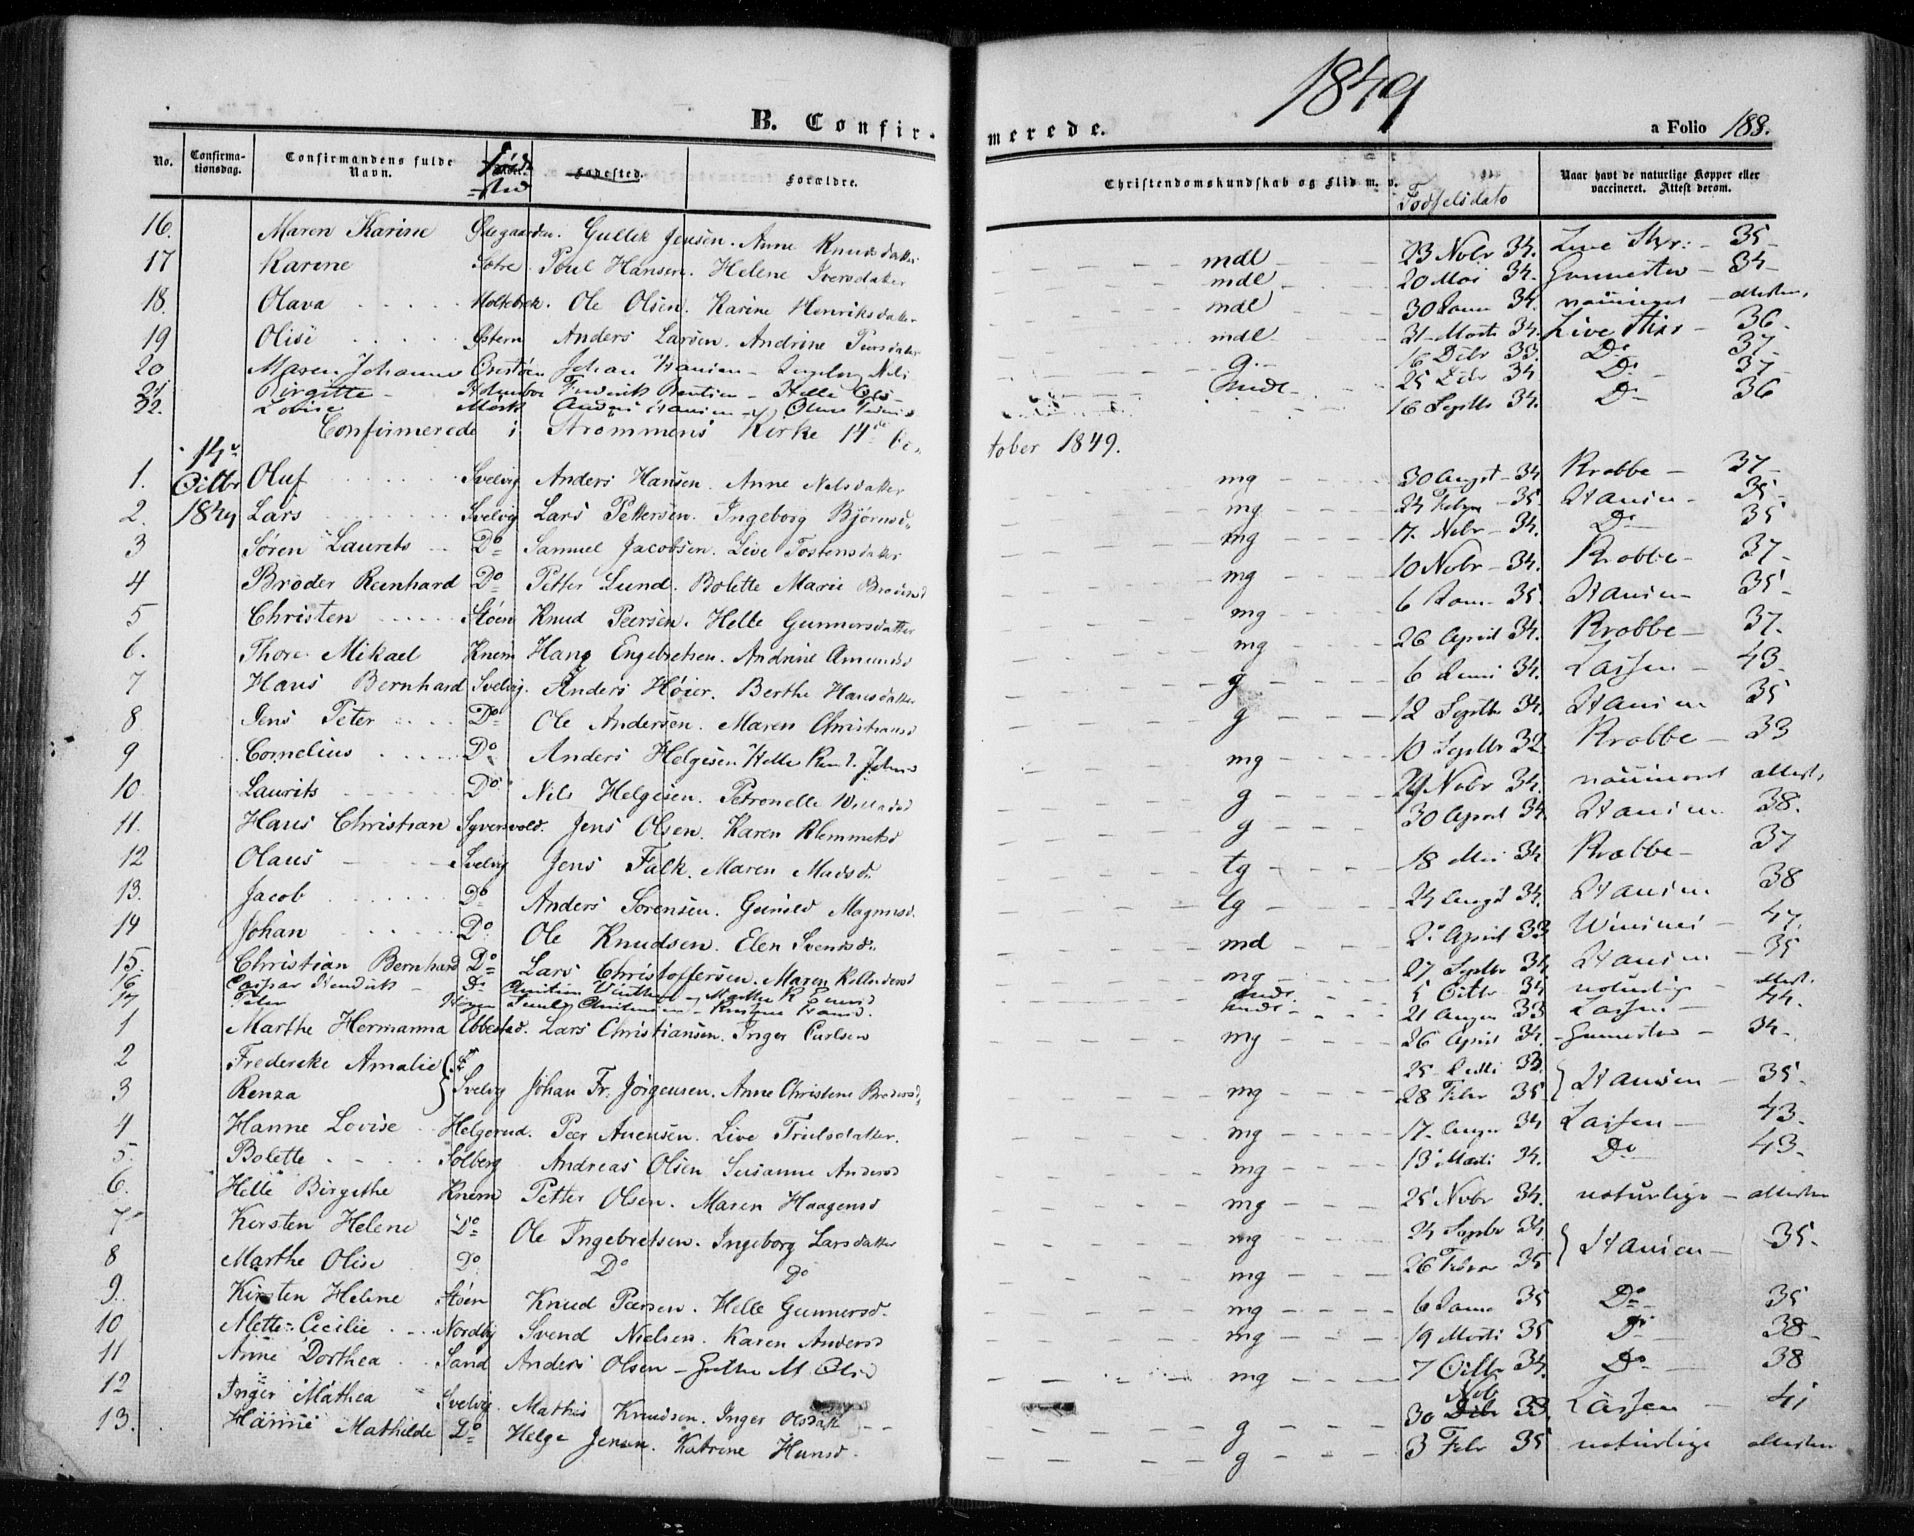 1849
B. Confirmerede. a Folio 188.
No. Confirmationsdag. Confirmandens fulde Navn. Fødested. Forældre. Christendomskundskab og Flid m. v. Fødselsdato Naar havt de naturlige Kopper eller vaccineret. Attest derom.
16. Maren Karine Ødegaarden. Gullik Jensen. Anne Knudsdatter mdl 23 Nobr 34. 35
17 Karene Sotre Poul Hansen. Helene Iversdatter mdl 20 Mai 34. 34
18. Olava Holtebrek. Ole Olsen. Karine Henriksdatter mdl 30 Janu 34.
19 Olise Østern Anders Larsen. Andrine Persdatter mdl 31 Marts 34. 36.
20 Maren Johanne Johan Hansen Ingeborg Nils g. 16 Debr 33. Do 37
21 Birgitte Frederik Helle Ols mdl 25 Debr 34 Do 37
22. Lovise Mørk Anders Hansen 16 Septbr 34. Do 36
Confirmerede i Strømmens Kirke 14de October 1849.
1. 14 Octbr 1849 Oluf Svelvig Anders Hansen. Anne Nelsdatter mg 30 Augst 34 Krabbe 37
2. Lars Svelvig Lars Pettersen. Ingeborg Bjørnsd. mg 24 35. Hansen 35
3 Søren Laurets Do Samuel Jacobsen. Live Torstensdatter mg 17 Nobr 34. Do 35
4 Brøder Reinhard Do Petter Lund. Bolette Marie mg 10 Nobr 34. Krabbe 37
5 Christen Støen Knud Peersen. Helle Gunnersdatter mg 6 Janu 35. Hansen 35
6. Thore Mikael Knem Hans Engebretsen. Andrine Amundsd mg 26 April 34. Krabbe 37.
7 Hans Bernhard Svelvig. Anders Høier. Berthe Hansdatter g 6 Juni 34. Lassen 43
8 Jens Peter Do Ole Andersen. Maren Christiansd g 12 Septbr 34. Hansen 35
9 Cornelius Do Anders Helgesen Helle mg 10 Septbr 32. Krabbe 33
10. Laurits Do Nils Helgesen. Petronelle g 29 Nobr 34.
11. Hans Christian Syversvold. Jens Olsen. Karen Klemmetsd g 30 April 34. Hansen 38.
12 Olaus Svelvig Jens Falk. Maren Madsd. tg 18 Mai 34 Krabbe 37
13. Jacob Do Anders Sørensen. Gunild Magnusd. tg 24 Augst 34. Hansen 38
14 Johan Do Ole Knudsen. Elen Svendsd. md 2. April 33 47.
15. Christian Bernhard Do Lars Christoffersen. Maren mg 27 Septbr 34. Hansen 35
16 Caspar Hendrik Do mdl. 5 Octbr 34 naturlige attest.
17 Peter mdl. 21 Augu 33 Lassen 44.
1 Marthe Hermanna Ebbestad. Lars Christiansen. Inger Carlsen mg 26 April 34. 34
2 Frederikke Amalie 25 33
3 Renza Svelvig Johan Fr. Jørgensen. Anne Christene Brødersd. mg 28 Febr 35. Hansen 35
4 Hanne Lovise Helgerud. Peer Auensen. Live Trulsdatter. mg 17 Augu 34 Lassen 43.
5. Bolette Sølberg Andreas Olsen Susanne Andersd mg 13 Marti 34. Do 43
6. Helle Birgithe Knem Petter Olsen. Maren Haagensd mg 25 Nobr 34. naturlige attesten
7 Kersten Helene Do Ole Ingebretsen. Ingeborg Larsdatter mg 24 Septbr 34.
8 Marthe Olise Do Do Do mg 26 Febru 35 Hansen 35
9. Kirsten Helene Støen Knud Peersen. Helle Gunnersd. mg 6 Janu 35 Do 35
10 Mette Cecilie Nordby Svend Nielsen. Karen Andersd mg 19 Marti 35 Do 38
11 Anne Dorthea Sand Anders Olsen M Olsd mg 7 Octbr 34. Do 38
12 Inger Mathea Svelvig. Mathis Knudsen. Inger Olsdatt g 30 Nobr 33 Lassen 41
13. Hanne Mathilde Do Helge Jensen. Katrine Hansd. g 3 Febr 35 naturlige attesten